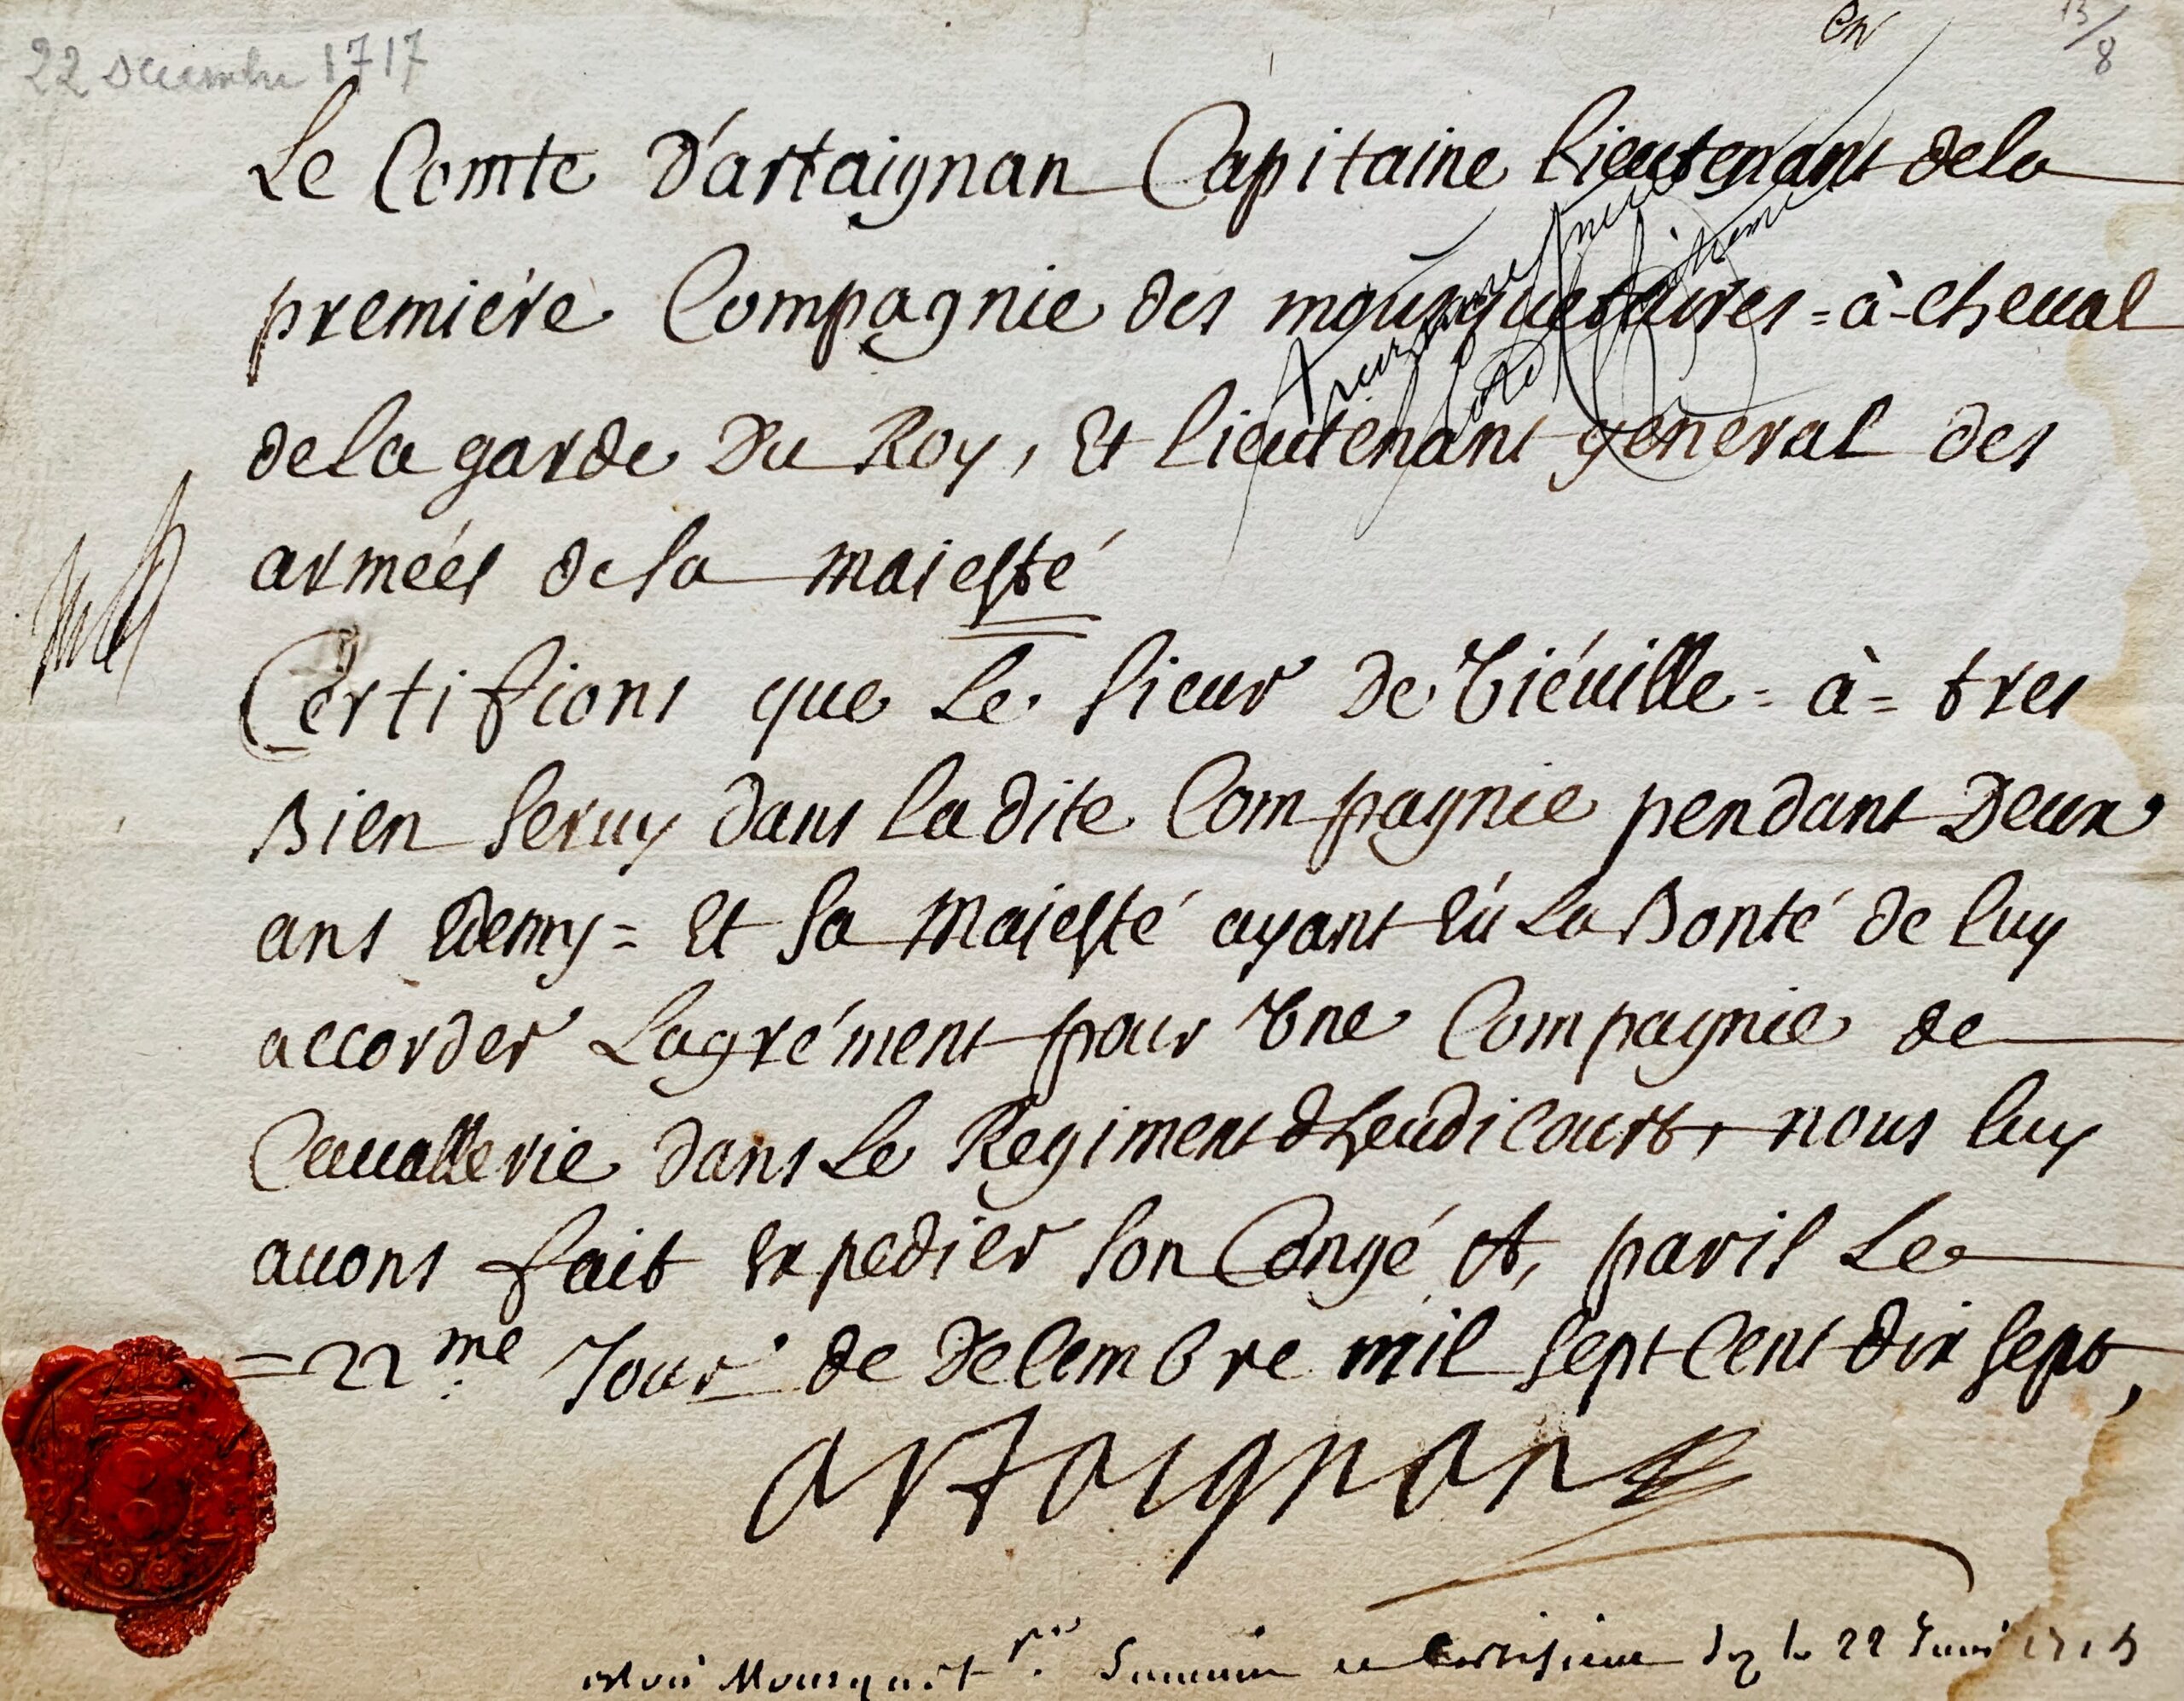 22 decembre 1717
Le Comte D'artaignan Capitaine lieutenant dela
premiére Compagnie des mousquetaires=à-cheual
dela garde Du Roy, Et lieutenant general des
armées de sa maiesté
Certifions que Le Sieur de Tiéuille=à=tres
Bien Seruy dans la dite Compagnie pendant Deux
ans Edemy= Et Sa Maiesté ayant Eû La Bonté de luy
accorder Lagrément pour Vne Compagnie de
Cauallerie dans Le Regiment dheudicourt, nous luy
auons fait Expedier Son Congé A, paris Le
=22me Jour de Decembre mil Sept Cent dix Sept,
artaignan
estoit Mousquet. suivant ce Certificat le 22